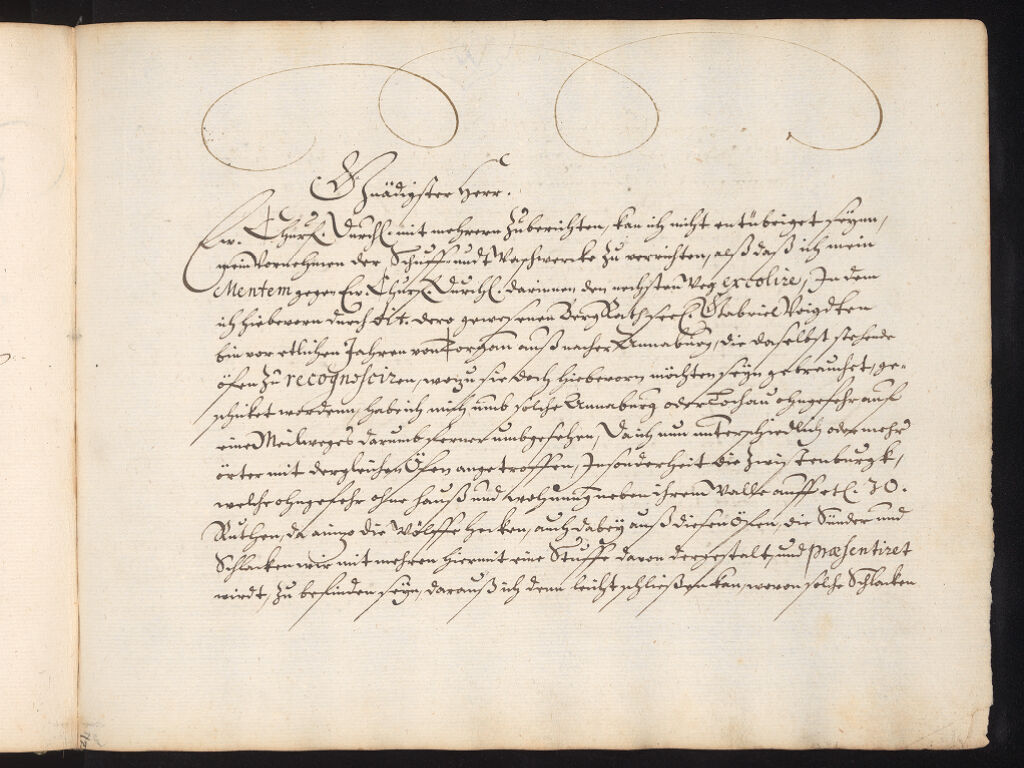 Gnädigster Herr.
Ew. Churf. Durchl. mit mehrern zu berichten, kan ich nicht entübriget seynn,
mein Vornehmen der Schuff- undt Waschwercke zu verrichten, alß daß ich mein
Mentem gegen Ew. Churf. Durchl. darinnen den nechsten Weg excolire, In dem
ich hiebevorn durch tit. dero gewesenen Berg Rath seel. Gabriel Voigdten
bin vor etlichen Jahren von Torgau auß nacher Annaburg, die daselbst stehende
öfen zu recognosciren, worzu sie doch hiebevorn möchten seyn gebrauchet, ge-
schicket wordenn, habe ich mich umb solche Annaburg oder Lochau ohngefehr auf
einer Meilweges darumb ferner umbgesehen, Da ich nun unterschiedlich oder mehr
örter mit dergleichen Öfen angetroffen, Insonderheit die Zwistenburgk,
welche ohngefehr ohne hauß und wohnung neben ihrem Walle auff etl. 30.
Ruthen, da aniezo die Wölffe hecken, auch dabey auß diesen Öfen, die Sünder und
Schlacken wir mit mehren hiermit eine Stuffe davon dergestalt, und præsentiret
wirdt, zu befinden seyn, darauß ich denn leicht schließen kan, wovon solche Schlacken